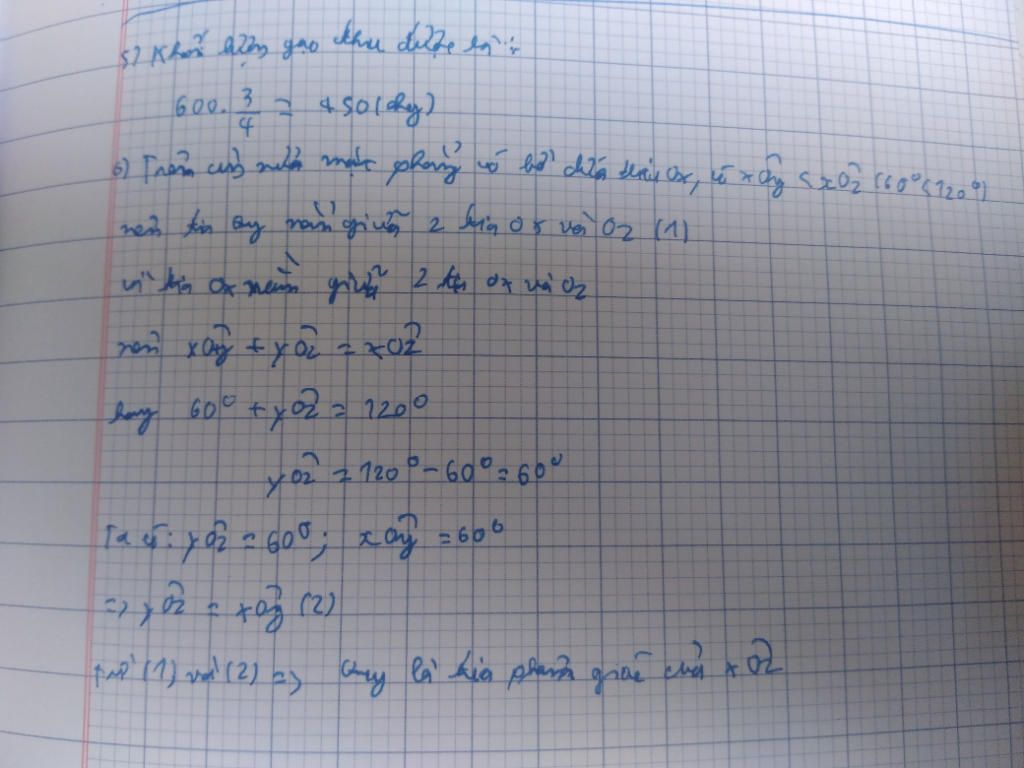 5) Khối lượng gạo thu được là:
600 . 3/4 = 450 (kg)
6) Trên cùng nửa mặt phẳng có bờ chứa tia Ox, có xÔy < xÔz (60° < 120°)
nên tia Oy nằm giữa 2 tia Ox và Oz (1)
vì tia Ox nằm giữa 2 tia Ox và Oz
nên xÔy + yÔz = xÔz
hay 60° + yÔz = 120°
yÔz = 120° - 60° = 60°
Ta có: yÔz = 60°; xÔy = 60°
=> yÔz = xÔy (2)
từ (1) và (2) => Oy là tia phân giác của xÔz